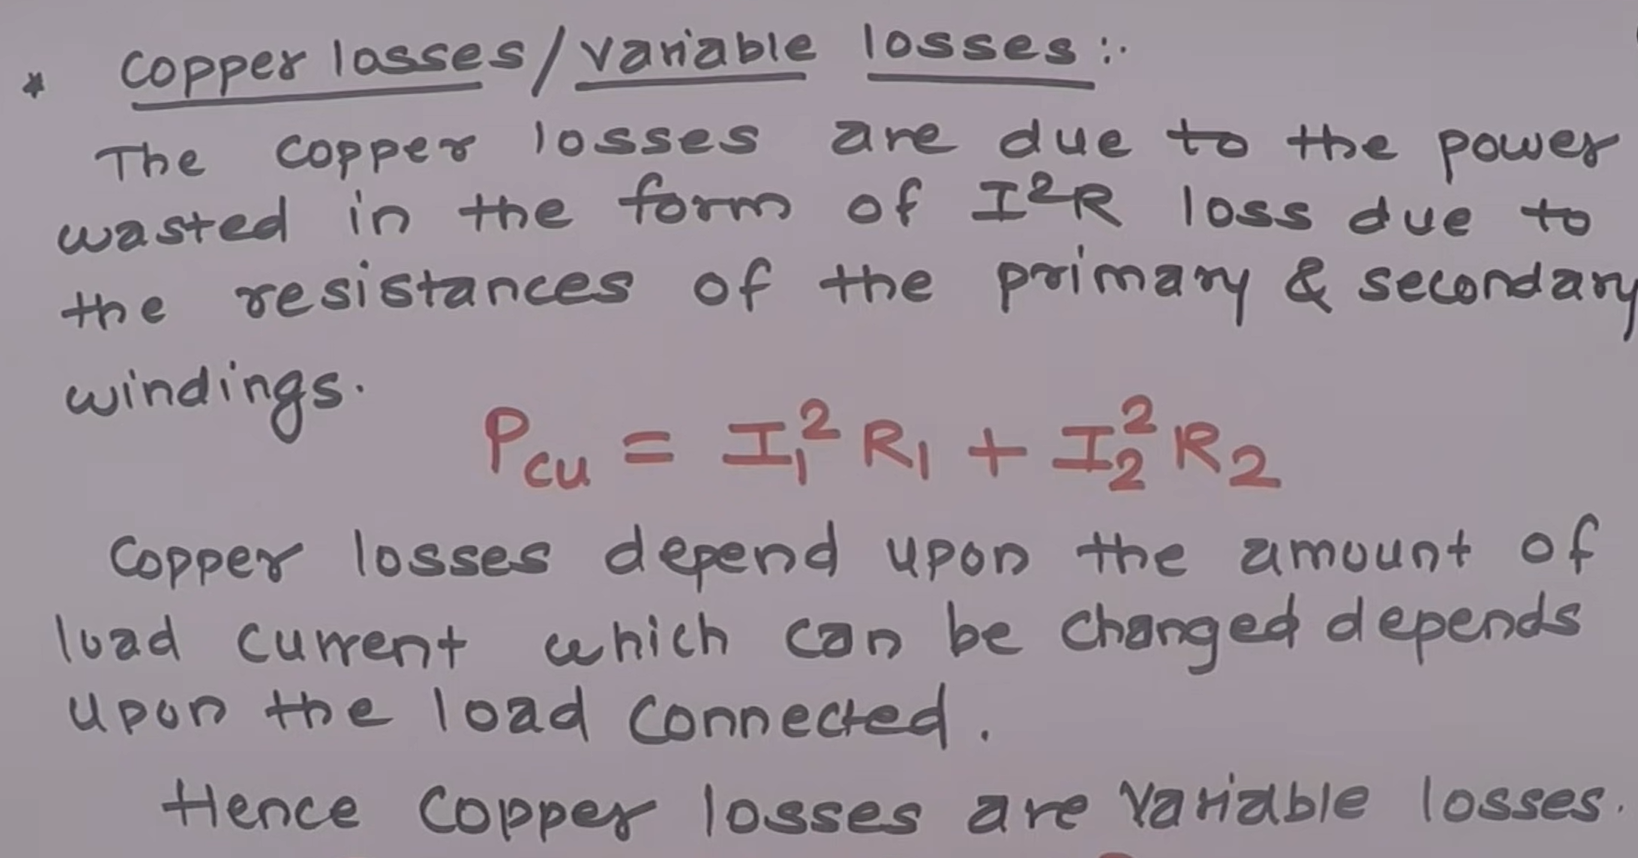 * Copper losses/variable losses:-
The copper losses are due to the power
wasted in the form of I²R loss due to
the resistances of the primary & secondary
windings.
Pcu = I₁² R₁ + I₂² R₂
Copper losses depend upon the amount of
load current which can be changed depends
upon the load connected.
Hence copper losses are variable losses.